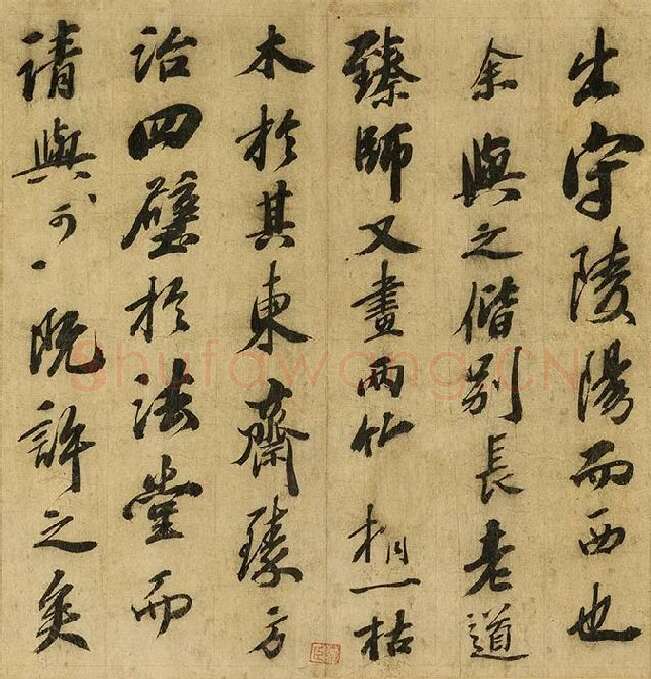 出守陵陽而西也
余與之偕別長老道
臻師又畫兩竹梢一枯
木於其東齋臻方
治四壁於法堂而
請與丶可丶既許之矣
shufawang.CN